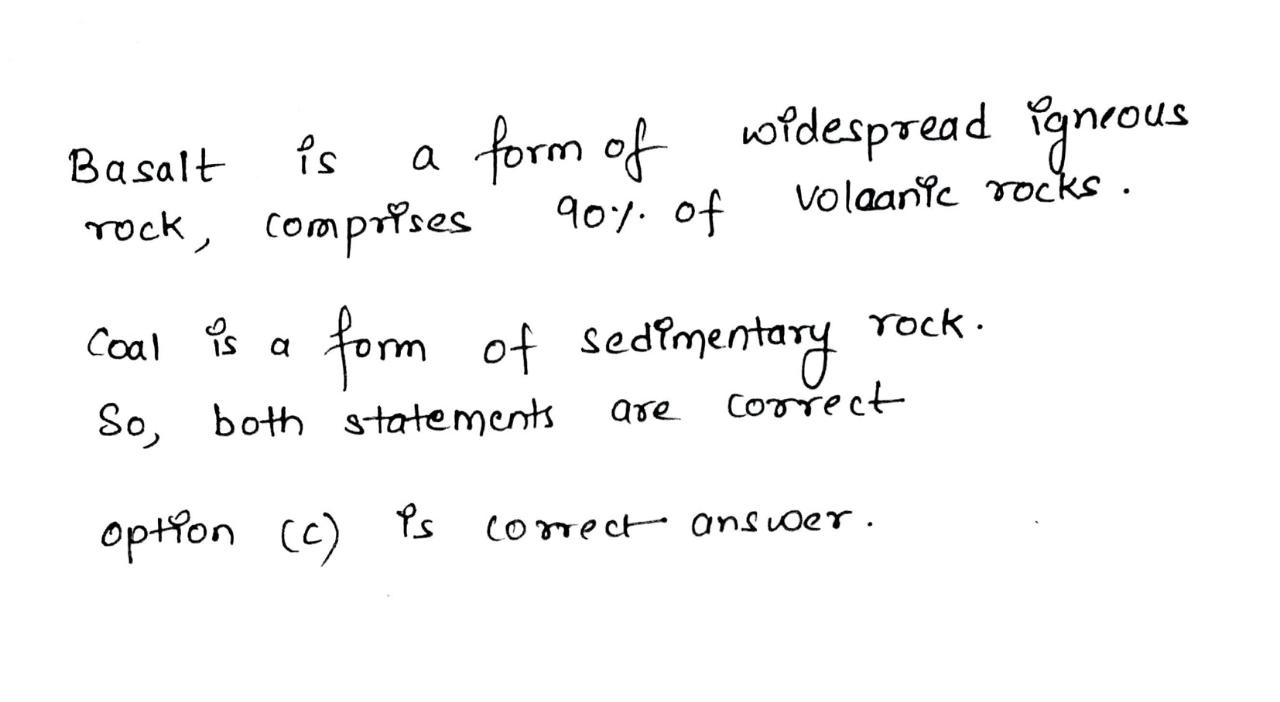 Basalt is a form of widespread igneous
rock, comprises 90% of volaanic rocks.
Coal is a form of sedimentary rock.
So, both statements are correct
option (c) is correct answer.